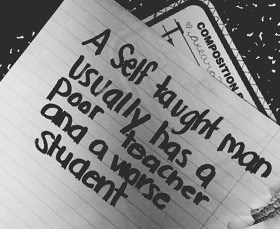 A Self taught man
usually has a
poor teacher
and a worse
student
COMPOSITION